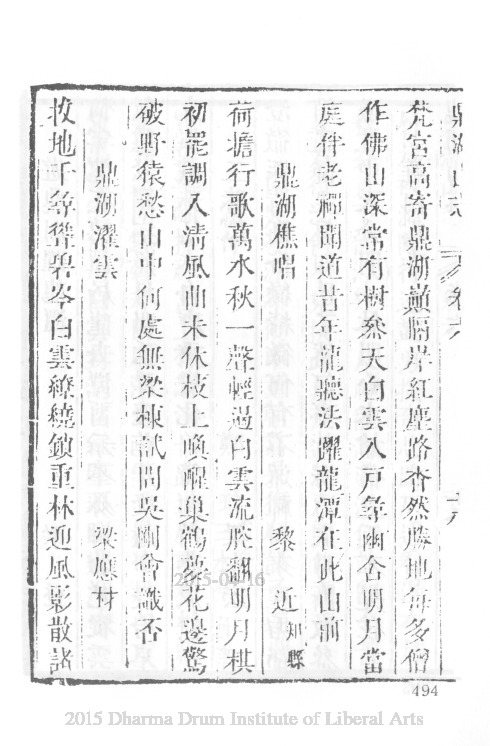 鼎湖山志 卷六 六
梵宮高寄鼎湖巔隔岸紅塵路杳然勝地每多僧
作佛山深常有樹叅天白雲入戶尋幽舍明月當
庭伴老禪聞道昔年龍聽法躍龍潭在此山前
鼎湖樵唱 黎 近 知縣
荷擔行歌萬水秋一聲輕過白雲流腔翻明月棋
初罷調入清風曲未休枝上喚醒巢鶴夢花邊驚
破野猿愁山中何處無梁棟試問吳剛會識否
鼎湖濯雲 梁應材
拔地千尋聳碧岑白雲繚繞鎖重林迎風影散諸
2015-04-16
494
2015 Dharma Drum Institute of Liberal Arts